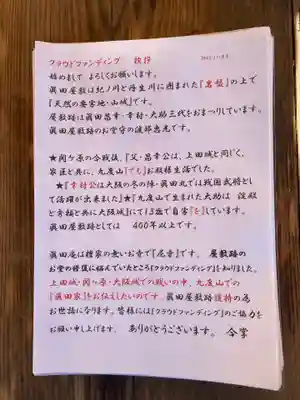 クラウドファンディング 挨拶
始めまして よろしくお願いします。
眞田屋敷は紀ノ川と丹生川に囲まれた『息場』の上で
『天然の要害地・山城』です。
屋敷跡は眞田昌幸・幸村・大助三代をおまつりしています。
眞田屋敷跡のお堂守の渡部恵光です。
★関ケ原の合戦後、『父・昌幸公は、上田城と同じく、
家臣と共に、九度山『でも』お殿様生活でした。
★『幸村公は大阪の冬の陣・眞田丸では戦国武将とし
て活躍が出来ました』★九度山で生まれた大助は 淀殿
と秀頼と共に大阪城』にて15歳で自害『を』しています。
眞田屋敷跡としては 400年以上です。
眞田庵は檀家の無いお寺で『尼寺』です。 屋敷跡の
お堂の修復に悩んでいたところ『クラウドファンディング』を知りました。
上田城・関ケ原・大阪城での戦いの中、九度山での
『眞田家』をお伝えしたいのです。眞田屋敷跡維持の為
お世話になります。皆様には『クラウドファンディング』のご協力を
お願い申し上げます。 ありがとうございます。 合掌